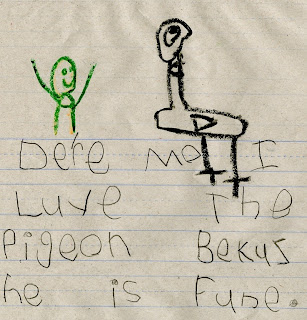 Dere Mo I
Luve The
Pigeon Bekus
he is Fune.